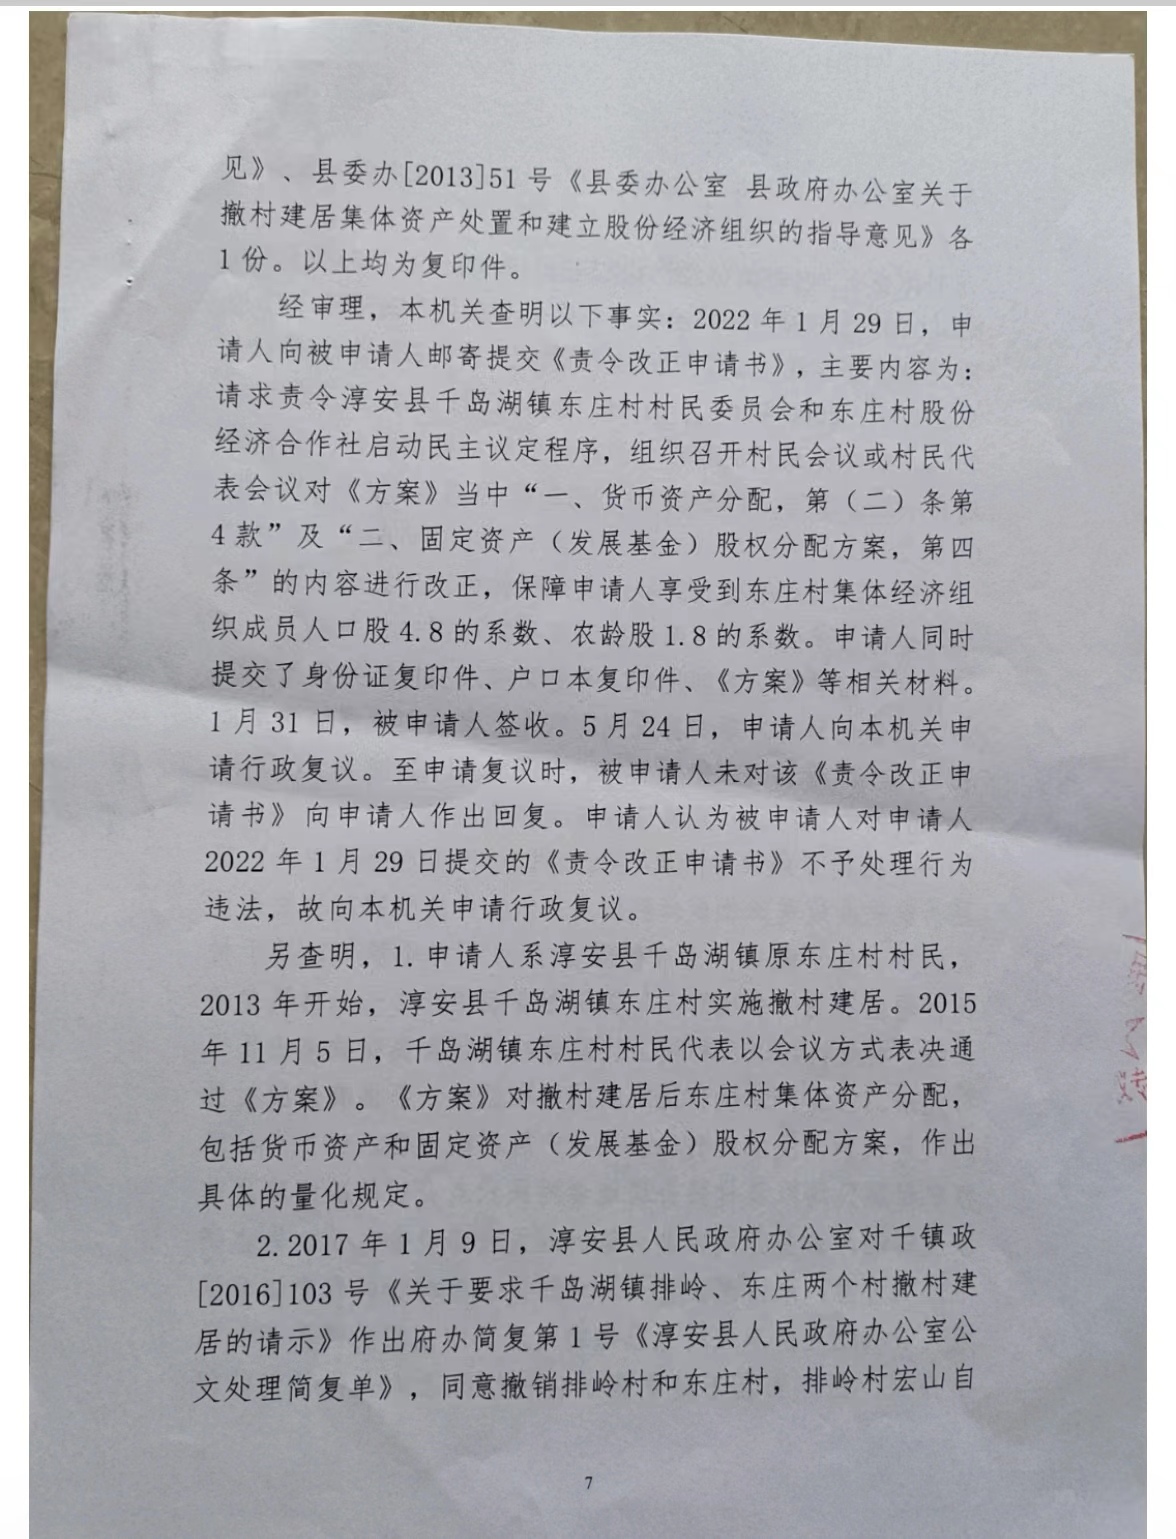 见》、县委办[2013]51号《县委办公室 县政府办公室关于
撤村建居集体资产处置和建立股份经济组织的指导意见》各
1份。以上均为复印件。
经审理，本机关查明以下事实：2022年1月29日，申
请人向被申请人邮寄提交《责令改正申请书》，主要内容为：
请求责令淳安县千岛湖镇东庄村村民委员会和东庄村股份
经济合作社启动民主议定程序，组织召开村民会议或村民代
表会议对《方案》当中“一、货币资产分配，第（二）条第
4款”及“二、固定资产（发展基金）股权分配方案，第四
条”的内容进行改正，保障申请人享受到东庄村集体经济组
织成员人口股4.8的系数、农龄股1.8的系数。申请人同时
提交了身份证复印件、户口本复印件、《方案》等相关材料。
1月31日，被申请人签收。5月24日，申请人向本机关申
请行政复议。至申请复议时，被申请人未对该《责令改正申
请书》向申请人作出回复。申请人认为被申请人对申请人
2022年1月29日提交的《责令改正申请书》不予处理行为
违法，故向本机关申请行政复议。
另查明，1.申请人系淳安县千岛湖镇原东庄村村民，
2013年开始，淳安县千岛湖镇东庄村实施撤村建居。2015
年11月5日，千岛湖镇东庄村村民代表以会议方式表决通
过《方案》。《方案》对撤村建居后东庄村集体资产分配，
包括货币资产和固定资产（发展基金）股权分配方案，作出
具体的量化规定。
2.2017年1月9日，淳安县人民政府办公室对千镇政
[2016]103号《关于要求千岛湖镇排岭、东庄两个村撤村建
居的请示》作出府办简复第1号《淳安县人民政府办公室公
文处理简复单》，同意撤销排岭村和东庄村，排岭村宏山自
7